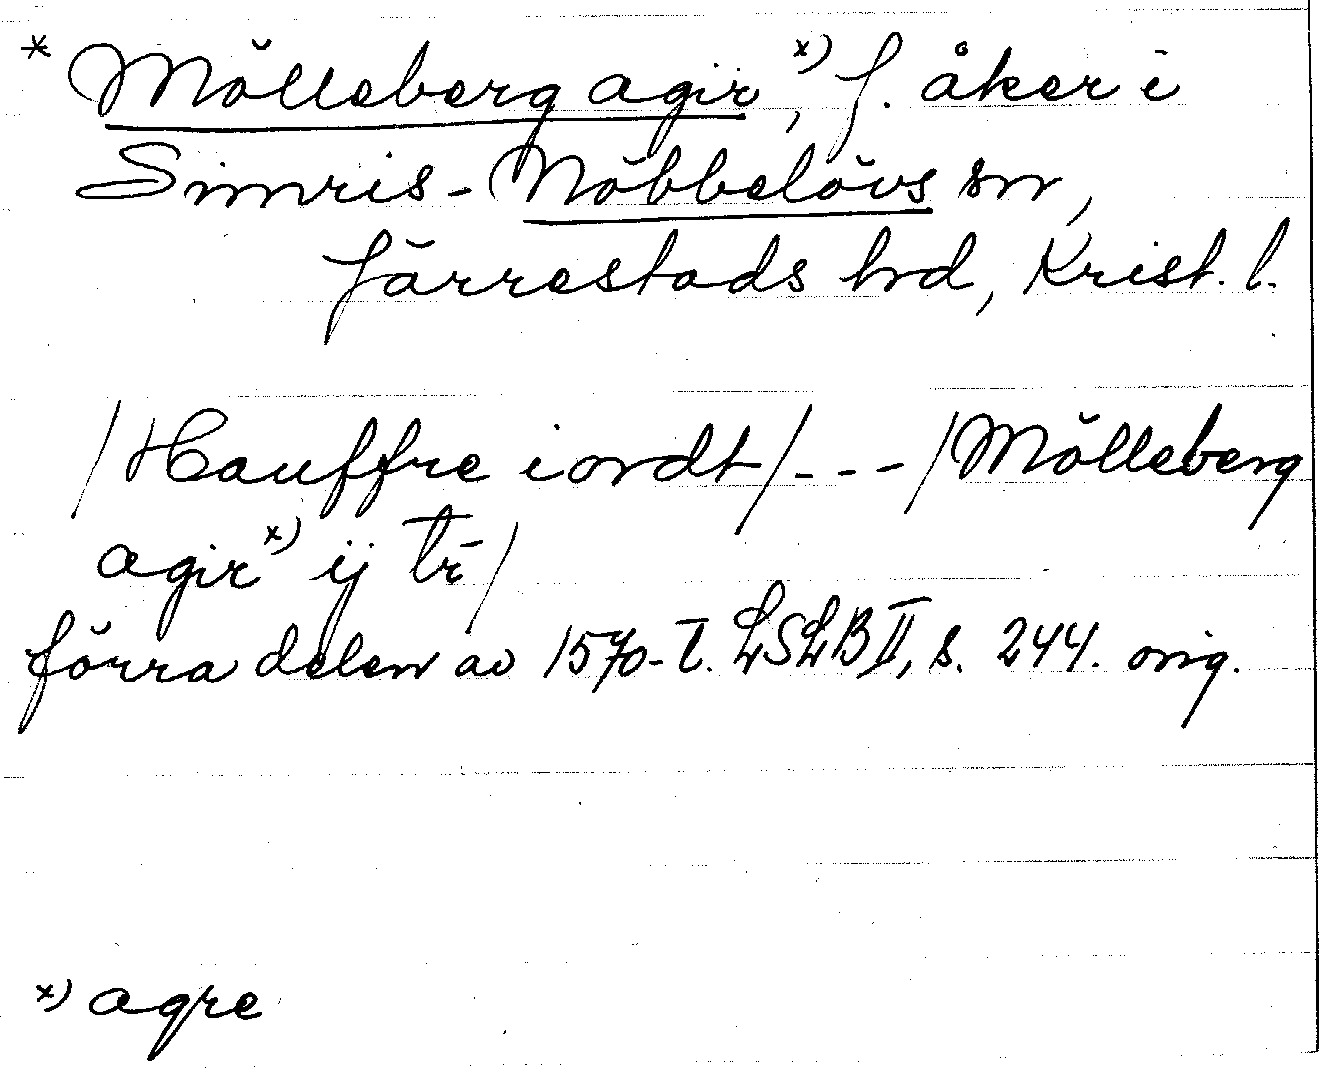 * Mölleberg agir x), f. åker i
Simris-Nöbbelövs sn,
Järrestads hd, Krist. l.
/Hauffre iordt/---/Mölleberg
agir x) ij tr̄/
förra delen av 1570-t. LSLB II, s. 244. orig.
x) agre